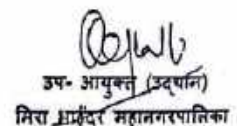 उप- आयुक्त (उद्यान)
मिरा भाईंदर महानगरपालिका